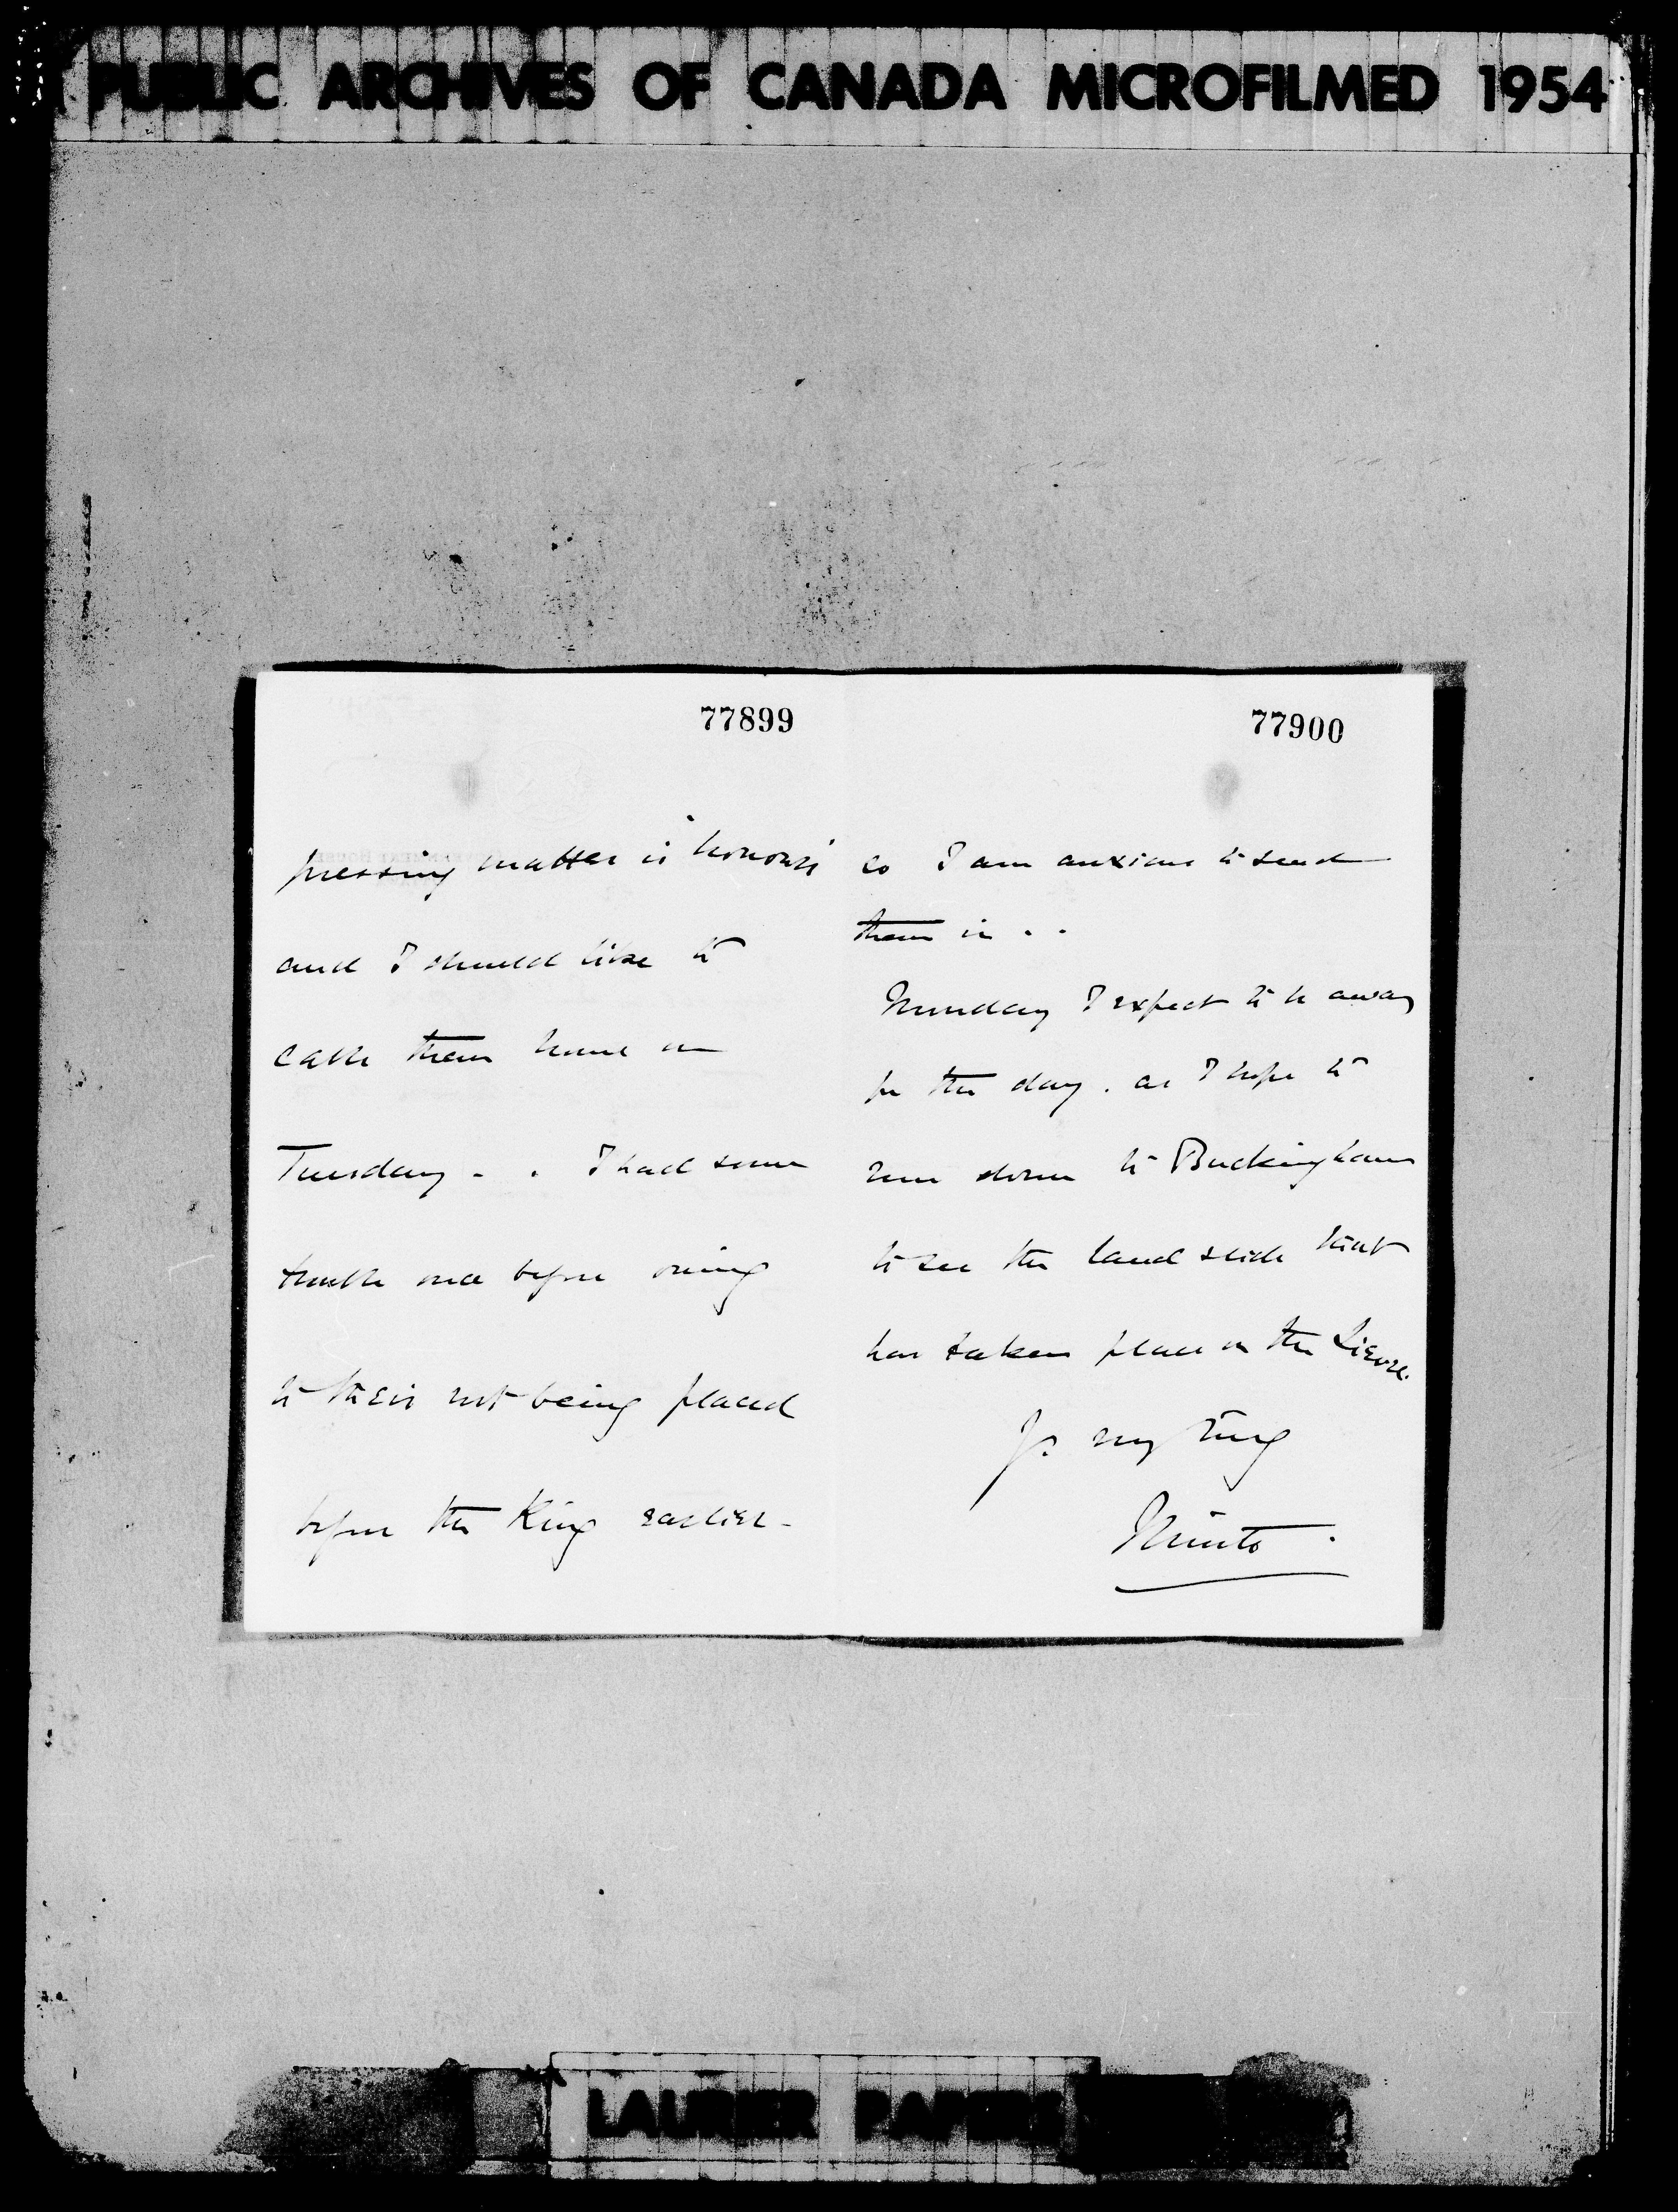 PUBLIC ARCHIVES OF CANADA MICROFILMED 1954
77899
pressing matter is honours
and I should like to
cable them home on
Tuesday - . I had some
trouble once before owing
to their not being placed
before the King earlier -
77900
so I am anxious to send
them in . .
Monday I expect to be away
for the day . as I hope to
run down to Buckingham
to see the land slide that
has taken place on the Lievre.
Yrs very truly
Minto .
LAURIER PAPERS